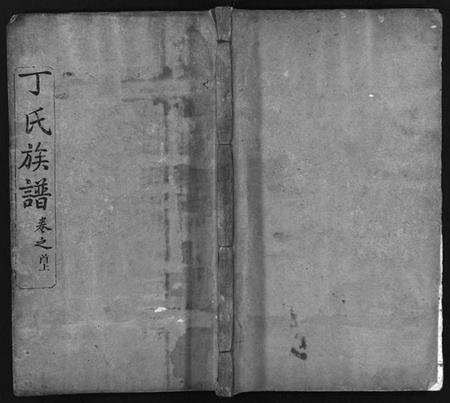 丁氏族譜卷之首上